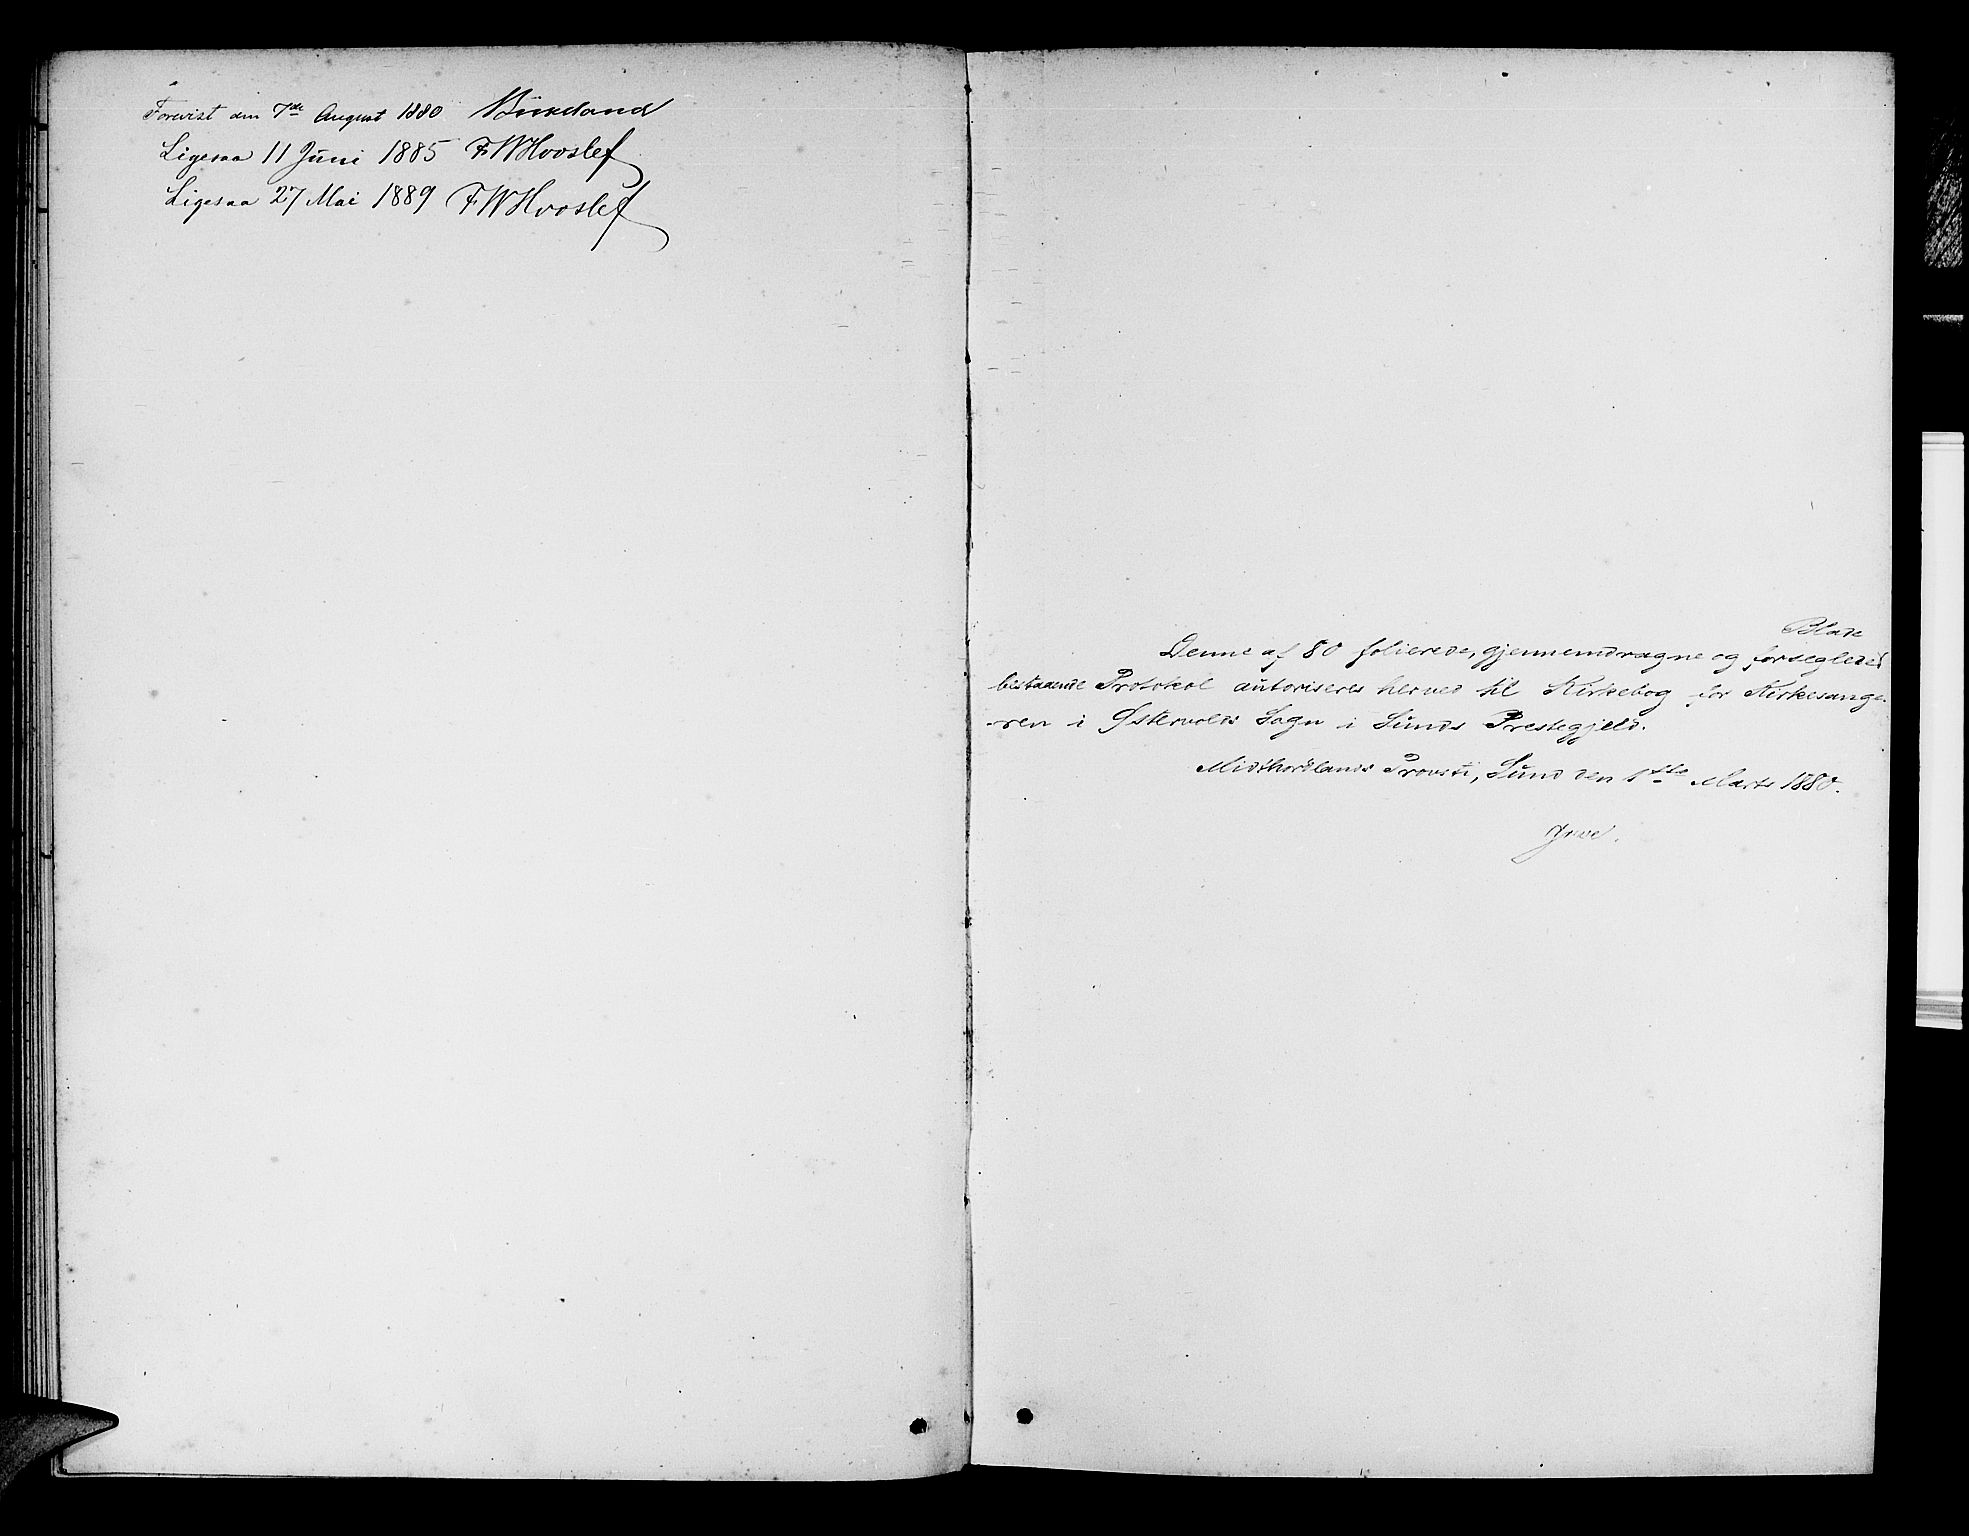 Forevist den 7de August 1880
Ligesaa 11 Juni 1885 FWHvoslef
Ligesaa 27 Mai 1889 FWHvoslef
Blade
Denne af 80 folierede, gjennemdragne og forseglede
bestaaende Protokol autoriseres herved til Kirkebog for Kirkesange-
-ren i Østervolds Sogn i Sunds Præstegjeld.
Midthordlands Provsti, Sund den 1ste Marts 1880.